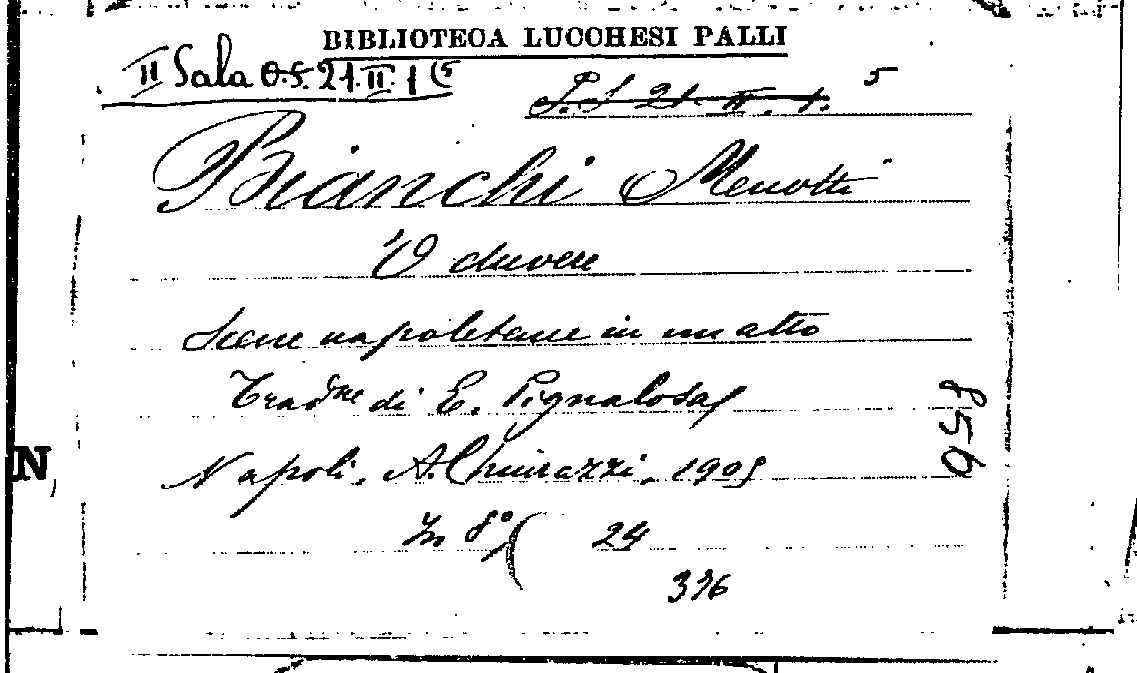 BIBLIOTECA LUCCHESI PALLI
II Sala O.S. 21. II. 1 (5
P.S 21. II. 1. 5
Bianchi Menotti
'O duvere
Scene napoletane in un atto
Trad.ne di E. Pignalosa
Napoli, A. Chiurazzi, 1905
In 8° ( 24
396
856
N